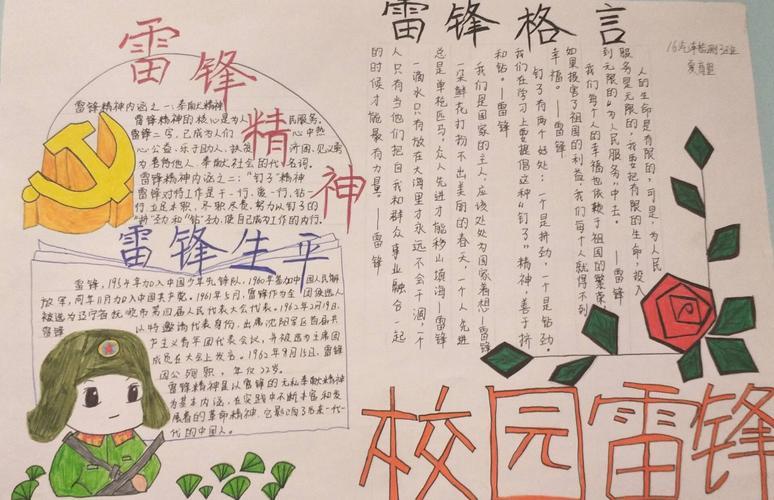 雷锋精神
雷锋精神内涵之一:奉献精神
雷锋精神的核心是为人民服务,
雷锋二字,已成为人们心中热
心公益、乐于助人、扶贫济困、见义勇
为、善待他人、奉献社会的代名词。
雷锋精神内涵之二:"钉子"精神
雷锋对待工作是干一行、爱一行、钻一
行,立足本职、尽职尽责,努力以钉子的
"挤"劲和"钻"劲,使自己成为工作的内行。
雷锋生平
雷锋,1954年加入中国少年先锋队,1960年参加中国人民解
放军,同年11月加入中国共产党。1961年5月,雷锋作为全团候选人
被选为辽宁省抚顺市第四届人民代表大会代表。1962年2月19日,
雷锋以特邀代表身份,出席沈阳军区首届共
产主义青年团代表会议,并被选为主席团
成员在大会上发言。1962年8月15日,雷锋
因公殉职,年仅22岁。
雷锋精神是以雷锋的无私奉献精神
为基本内涵,在实践中不断丰富和发
展着的革命精神,它影响了后来一代一
代的中国人。
雷锋格言
人的生命是有限的,可是,为人民
服务是无限的,我要把有限的生命,投入
到无限的"为人民服务"中去。——雷锋
我们每个人的幸福也依赖于祖国的繁荣,
如果损害了祖国的利益,我们每个人就得不到
幸福。——雷锋
钉子有两个好处:一个是挤劲,一个是钻劲。
我们在学习上要提倡这种"钉子"精神,善于挤
和钻。——雷锋
我们是国家的主人,应该处处为国家着想—雷锋
一朵鲜花打扮不出美丽的春天,一个人先进
总是单枪匹马,众人先进才能移山填海—雷锋
一滴水只有放在大海里才永远不会干涸,一个
人只有当他们把自我和群众事业融合一起
的时候才能最有力量。——雷锋
校园雷锋